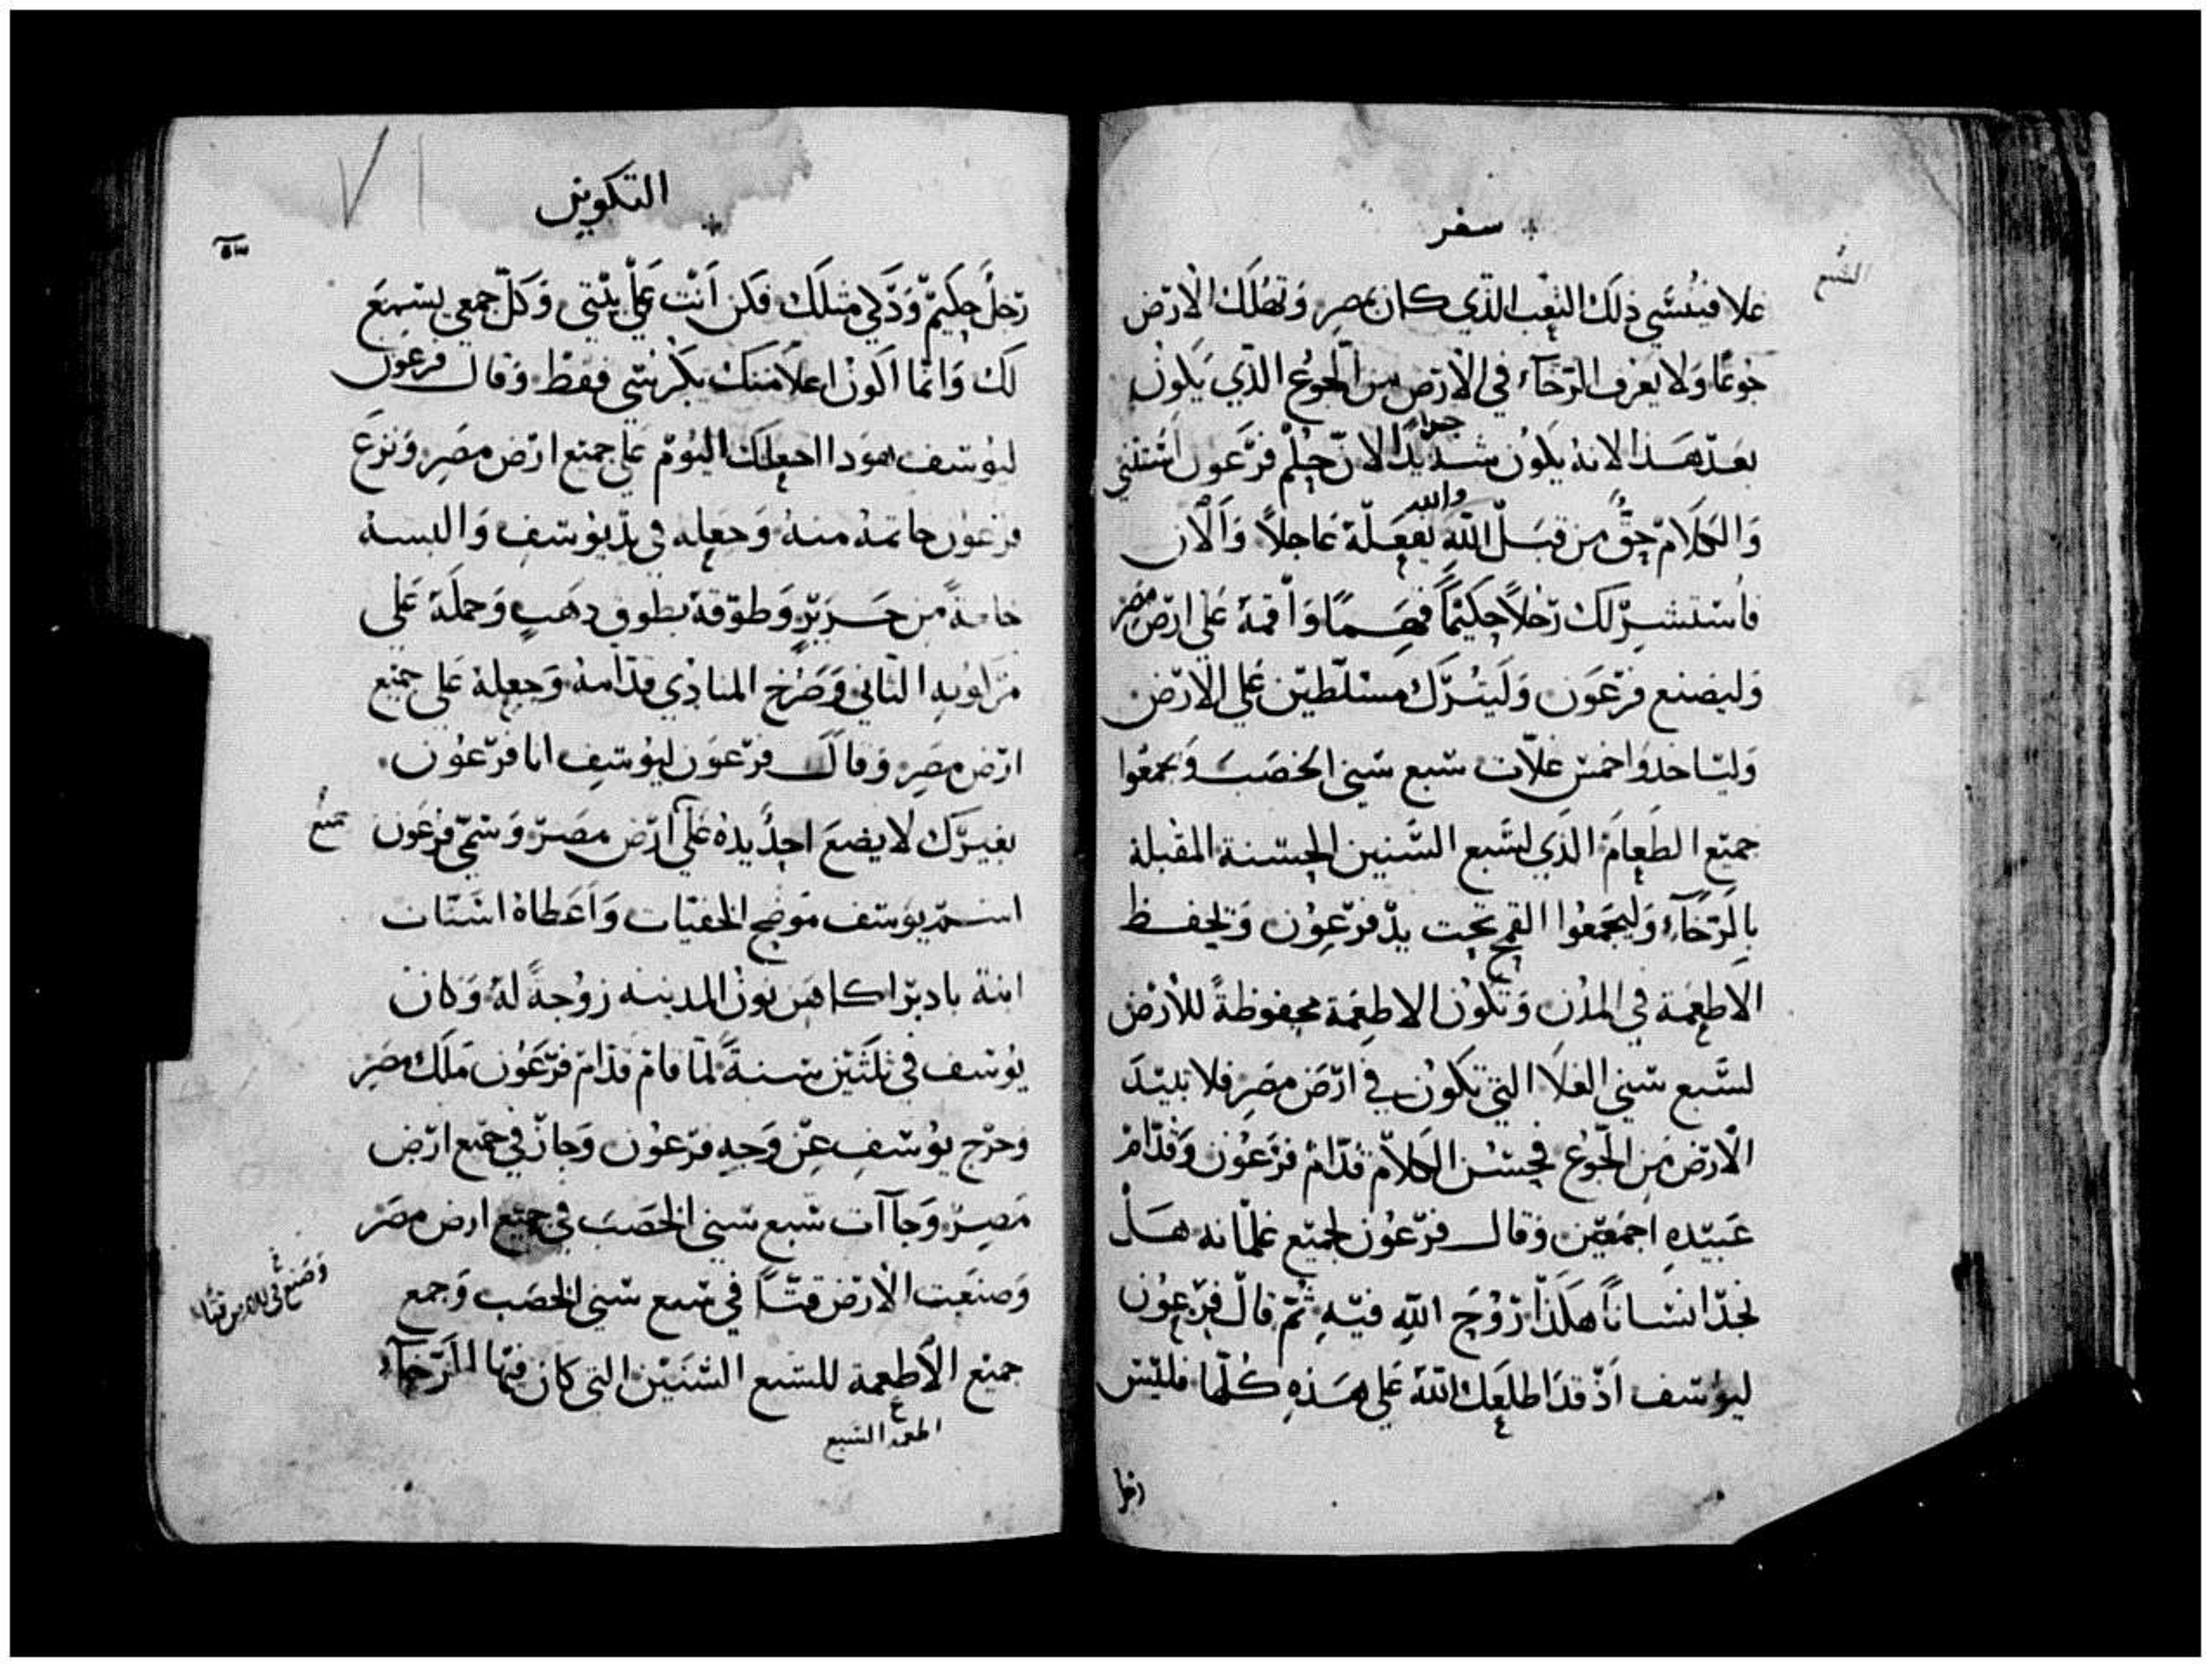 سفر
الشبع
غلا فينسي ذلك الشبع الذي كان بمصر وتهلك الارض
جوعًا ولا يعرف الرخآء في الارض من الجوع الذي يكون
بعد هذا لانه يكون شديدًا لان حلم فرعون اثنني
جدا
والكلام حقٌ من قبل الله يفعله عاجلاً والان
والله
فاستشر لك رجلاً حكيمًا فهمًا واقمه علي ارض مصر
وليصنع فرعون وليترك مسلطين علي الارض
ولياخدوا خمس غلات سبع سني الخصب ويجمعوا
جميع الطعام الذي لسبع السنين الحسنة المقبلة
بالرخآء وليجمعوا القمح تحت يد فرعون وتحفظ
الاطعمة في المدن وتكون الاطعمة محفوظةً للارض
لسبع سني الغلا التي تكون في ارض مصر فلا تبيد
الارض من الجوع فحسن الكلام قدام فرعون وقدام
عبيده اجمعين وقال فرعون لجميع غلمانه هل
نجد انسانًا هكذا روح الله فيه ثم قال فرعون
ليوسف اذ قد اطلعك الله علي هذه كلها فليس
رجل
التكوين
رجل حكيم ودكي مثلك فكن انت علي بيتي وكل جمعي يسمع
لك وانما اكون اعلا منك بكرسي فقط وقال فرعون
ليوسف هودا اجعلك اليوم علي جميع ارض مصر ونزع
فرعون خاتمه منه وجعله في يد يوسف والبسه
خلعةً من حرير وطوقه بطوق دهب وحمله علي
مراكبه الثاني وصرخ المنادي قدامه وجعله علي جميع
ارض مصر وقال فرعون ليوسف انا فرعون
بغيرك لا يضع احدٌ يده علي ارض مصر وسمي فرعون
جميع
اسم يوسف موضح الخفيات واعطاه اسنات
ابنة بادبرا كاهن نون المدينه زوجةً له وكان
يوسف في ثلثين سنةً لما قام قدام فرعون ملك مصر
وخرج يوسف عن وجه فرعون وجاز في جميع ارض
مصر وجاآت سبع سني الخصب في جميع ارض مصر
وصنعت الارض قتًا في سبع سني الخصب وجمع
وصنع في الارض قتًا
جميع الاطعمة للسبع السنين التي كان فيها الرخآء
اطعمة السبع